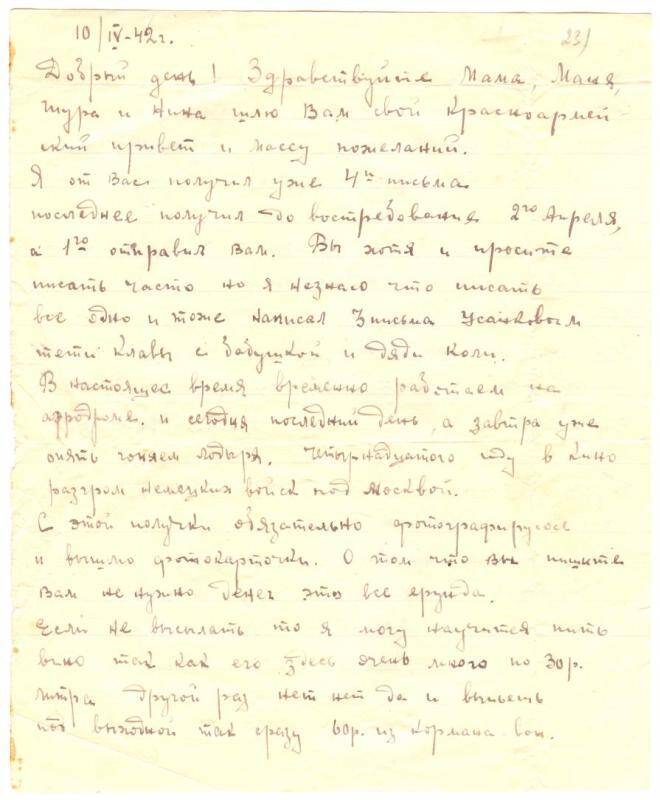 10/IV-42г.
23)
Добрый день! Здравствуйте Мама, Маня,
Шура и Нина шлю Вам свой Красноармей
ский привет и массу пожеланий.
Я от Вас получил уже 4и письма
последнее получил до востребование 2го Апреля,
а 1го отправил Вам. Вы хотя и просите
писать часто но я незнаю что писать
все одно и тоже написал 3 письма Усачковым
тети Клавы с бабушкой и дяди Коли.
В настоящее время временно работаем на
аэродроме. и сегодня последний день, а завтра уже
опять гоняем лодыря. Четырнадцатого иду в кино
разгром немецких войск под Москвой.
С этой получки обязательно фотографируюсе
и вышлю фотокарточки. О том что вы пишите
Вам не нужно денег это все ерунда.
Если не высылать то я могу научится пить
вино так как его здесь очень много по 30р.
литра другой раз нет нет да и выпьешь
под выходной так сразу 60р. из кормана вон.